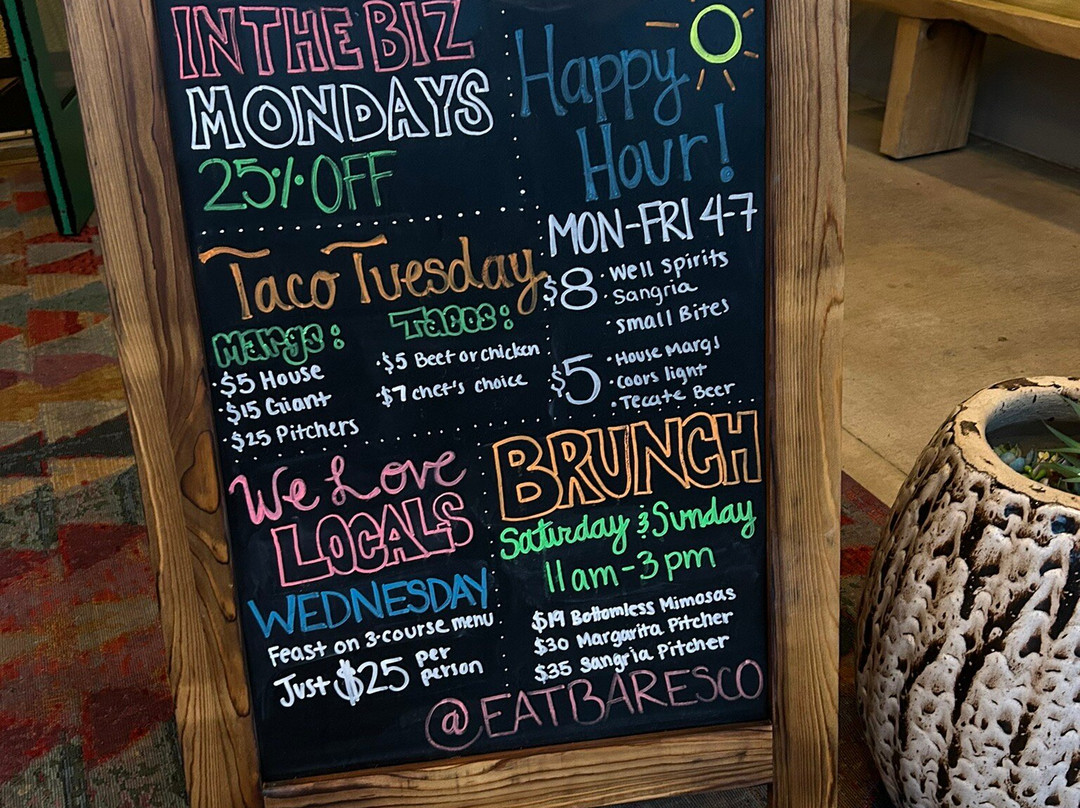 IN THE BIZ
MONDAYS
25% OFF
Happy
Hour!
MON-FRI 4-7
$8
· Well Spirits
· Sangria
· Small Bites
$5
· House Margs
· Coors light
· Tecate Beer
Taco Tuesday
Margs:
· $5 House
· $15 Giant
· $25 Pitchers
Tacos:
· $5 Beef or chicken
· $7 chef's choice
We Love
LOCALS
WEDNESDAY
Feast on 3-course menu
Just $25 per person
BRUNCH
Saturday & Sunday
11am-3pm
$19 Bottomless Mimosas
$30 Margarita Pitcher
$35 Sangria Pitcher
@EATBARESCO